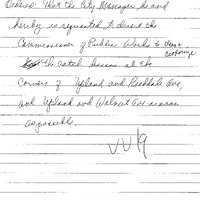 Ordered: That the City Manager be and
hereby is requested to direct the
Commissioner of Public Works to clean &
the catch basins at the
Corners of Upland and Rockdale Ave,
and Upland and Walnut Ave as soon
as possible.